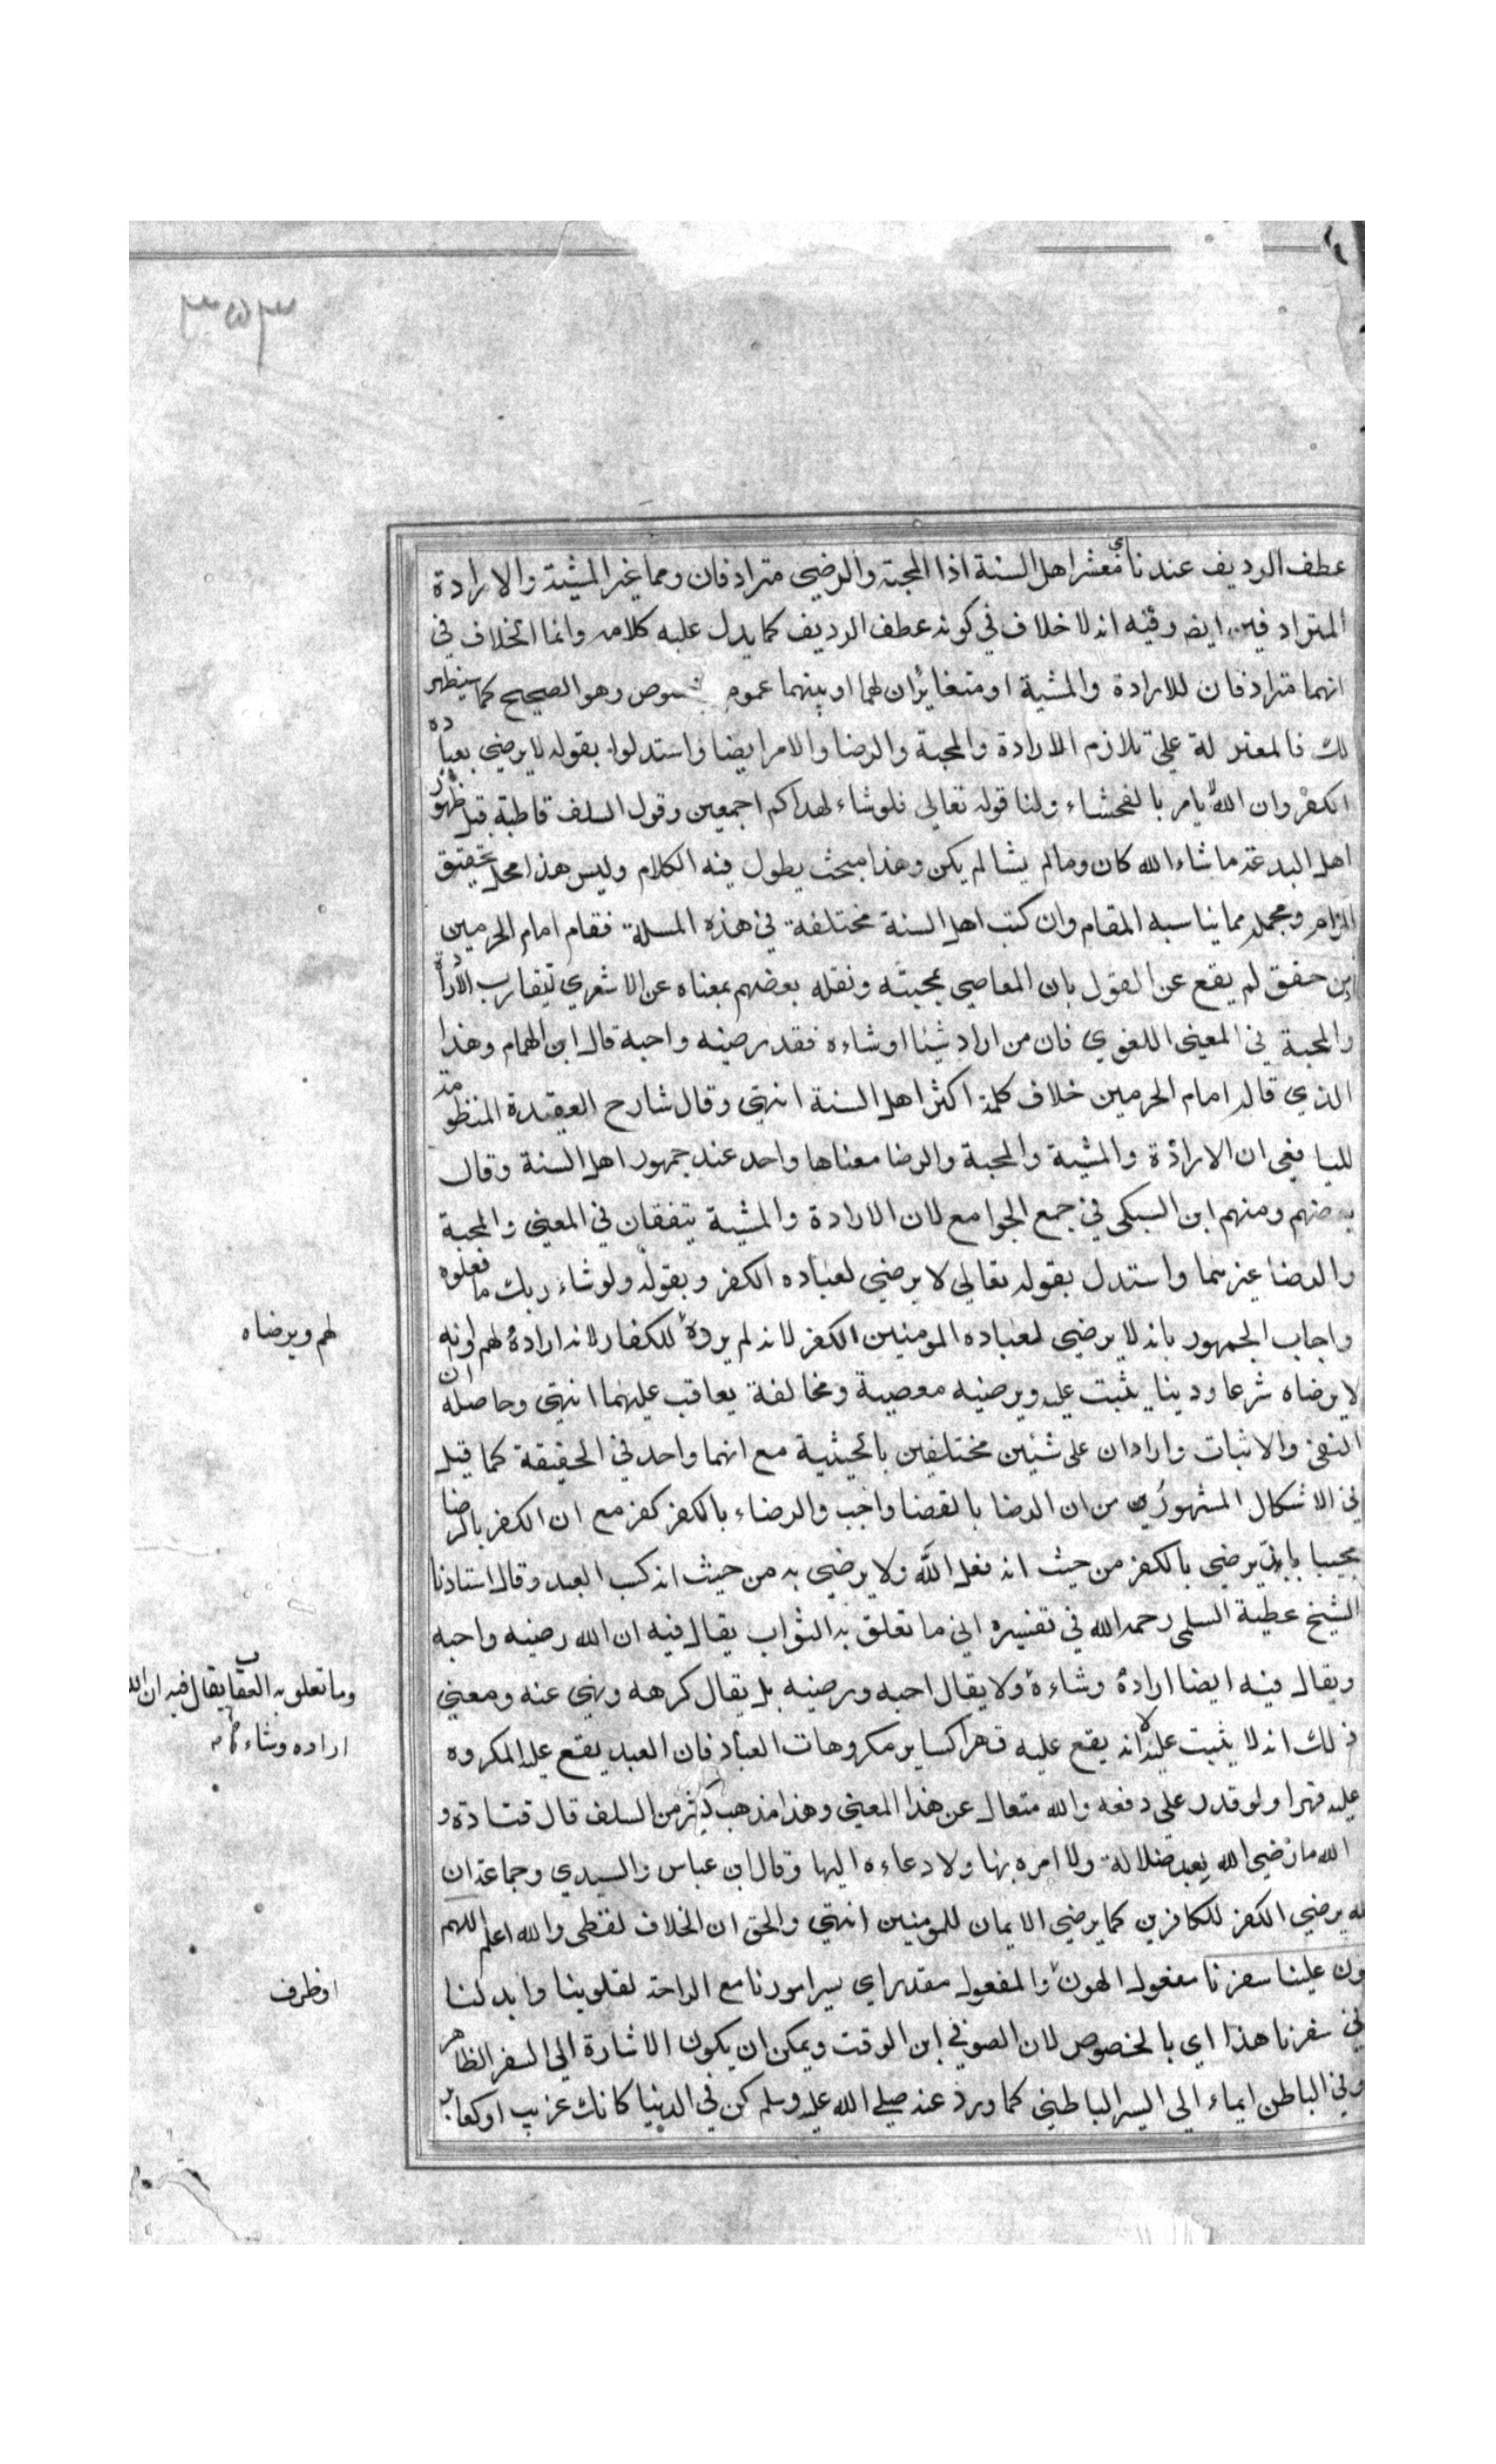 ٣٥٣
عطف الرديف عندنا أي معشر اهل السنة اذا المحبة والرضي مترادفان ومما غير المشية والارادة
المترادفين ايض وفيه انه لا خلاف في كونه عطف الرديف كما يدل عليه كلامه وانما الخلاف في
انهما مترادفان للارادة والمشية او متغايران لهما او بينهما عموم وهو الصحيح كما سيظهر
لك فالمعتزلة على تلازم الارادة والمحبة والرضا والامر ايضا واستدلوا بقوله لا يرضي بعباده
الكفر وان الله يامر بالفحشاء ولنا قوله تعالي فلو شاء لهداكم اجمعين وقول السلف قاطبة قبل ظهور
اهل البدعة ما شاء الله كان وما لم يشا لم يكن وهذا مبحث يطول فيه الكلام وليس هذا محل تحقيق
المرام ومجمله مما يناسبه المقام وان كتب اهل السنة مختلفة في هذه المسلة فقام امام الحرمين
ان من حقق لم يقع عن القول بان المعاصي بمحبته ونقله بعضهم بمعناه عن الاشعري لتقارب الارادة
والمحبة في المعنى اللغوي فان من اراد شيئا او شاءه فقد رضيه واحبه قال ابن الهمام وهذا
الذي قاله امام الحرمين خلاف كلمة اكثر اهل السنة انتهى وقال شارح العقيدة المنظومة
لليافعي ان الارادة والمشية والمحبة والرضا معناها واحد عند جمهور اهل السنة وقال
بعضهم ومنهم ابن السبكي في جمع الجوامع لان الارادة والمشية يتفقان في المعنى والمحبة
والرضا غيرهما واستدل بقوله تعالي لا يرضي لعباده الكفر وبقوله ولو شاء ربك ما فعلوه
واجاب الجمهور بانه لا يرضي لعباده المومنين الكفر لانه لم يرده للكفار لانه اراده لهم لونه
لا يرضاه شرعا ودينا يثبت عليه ويرضيه معصية ومخالفة يعاقب عليهما انتهى وحاصله ان
النفي والاثبات وارادان على شيئين مختلفين بالحيثية مع انهما واحد في الحقيقة كما قيل
في الاشكال المشهور من ان الرضا بالقضا واجب والرضاء بالكفر كفر مع ان الكفر بالرضا
مجيبا بانه يرضي بالكفر من حيث انه فعل الله ولا يرضي به من حيث انه كسب العبد وقال استاذنا
الشيخ عطية السلمى رحمه الله في تفسيره اني ما تعلق به الثواب يقال فيه ان الله رضيه واحبه
ويقال فيه ايضا اراده وشاءه ولا يقال احبه ورضيه بل يقال كرهه ونهي عنه ومعني
ذلك انه لا يثبت عليه لا انه يقع عليه قهرا كساير مكروهات العباد فان العبد يقع عليه المكروه
عليه قهرا ولو قدر على دفعه والله متعال عن هذا المعني وهذا مذهب كثير من السلف قال قتادة و
الله ما رضي الله بعبد ضلالة ولا امره بها ولا دعاءه اليها وقال ابن عباس والسدي وجماعة ان
لله يرضي الكفر للكافرين كما يرضي الايمان للمومنين انتهي والحق ان الخلاف لفظي والله اعلم اللهم
هون علينا سفرنا مفعول الهون والمفعول مقدر اي يسر امورنا مع الراحة لقلوبنا وابداننا
في سفرنا هذا اي بالخصوص لان الصوفي ابن الوقت ويمكن ان يكون الاشارة الي السفر الظاهر
وفي الباطن ايماء الي اليسر الباطني كما ورد عنه صلى الله عليه وسلم كن في الدنيا كانك غريب او كعابر
لهم ويرضاه
وما تعلق به العقاب يقال فيه ان الله
اراده وشاءه
او ظرف